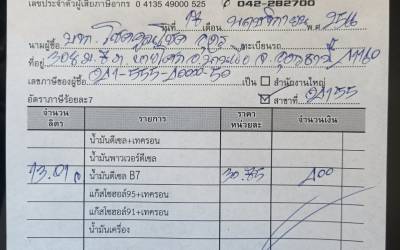 เลขประจำตัวผู้เสียภาษีอากร 0 4135 49000 525 042-282700
วันที่ 17 เดือน พฤศจิกายน พ.ศ. 2566
นามผู้ซื้อ ทะเบียนรถ
ที่อยู่ 308 ม.7 ต. อ. จ.อุดรธานี
เลขภาษีของผู้ซื้อ เป็น สำนักงานใหญ่
อัตราภาษีร้อยละ7 สาขาที่
จำนวนลิตร รายการ ราคาหน่วยละ จำนวนเงิน
น้ำมันดีเซล+เทครอน
น้ำมันพาวเวอร์ดีเซล
13.01 น้ำมันดีเซล B7 30.75 400
แก๊สโซฮอล์95+เทครอน
แก๊สโซฮอล์91+เทครอน
น้ำมันเครื่อง